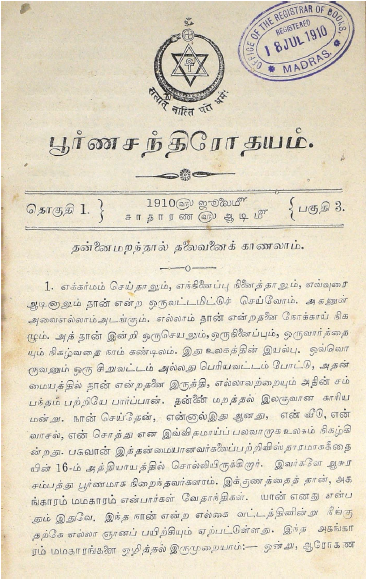 OFFICE OF THE REGISTRAR OF BOOKS,
REGISTERED
18 JUL 1910
MADRAS.
பூர்ணசந்திரோதயம்.
தொகுதி 1.
1910௵ ஜூலை௴
சாதாரண௵ ஆடி௴
பகுதி 3.
தன்னைமறந்தால் தலைவனைக் காணலாம்.
1. எக்கர்மம் செய்தாலும், எந்நினைப்பு நினைத்தாலும், எவ்வுரை
ஆடினாலும் நான் என்ற ஒருவட்டமிட்டுச் செய்வோம். அதனுள்
அவைஎல்லாம்அடங்கும். எல்லாம் நான் என்றதனை நோக்காய் நிக
ழும். அந் நான் இன்றி ஒருசெயலும்,ஒருநினைப்பும், ஒருவார்த்தை
யும் நிகழ்வதை நாம் கண்டிலம். இது உலகத்தின் இயல்பு. ஒவ்வொ
ருவனும் ஒரு சிறுவட்டம் அல்லது பெரியவட்டம் போட்டு, அதன்
மையத்தில் நான் என்றதனை இருத்தி, எல்லாவற்றையும் அதின் சம்
பந்தம் பற்றியே பார்ப்பான். தன்னை மறத்தல் இலகுவான காரிய
மன்று. நான் செய்தேன், என்னால்இது ஆனது, என் வீடு, என்
வாசல், என் சொத்து என இவ்விதமாய்ப் பலவாறாக உலகம் நிகழ்கி
ன்றது. பகவான் இத்தன்மையானவர்களைப்பற்றிவிஸ்தாரமாககீதை
யின் 16-ம் அத்தியாயத்தில் சொல்லியிருக்கிறார். இவர்களே ஆசுர
சம்பத்து பூர்ணமாக நிறைந்தவர்களாம். இக்குணத்தைத் தான், அகங்
காரம் மமகாரம் என்பார்கள் வேதாந்திகள். யான் எனது என்ப
தும் இதுவே. இந்த நான் என்ற எல்லை வட்டத்தினின்று நீங்கு
தற்கே எல்லா ஞானப் பயிற்சியும் ஏற்பட்டுள்ளது. இந்த அகங்கா
ரம் மமகாரங்களை ஒழித்தல் இருமுறையாம்:— ஒன்று, ஆரோகண